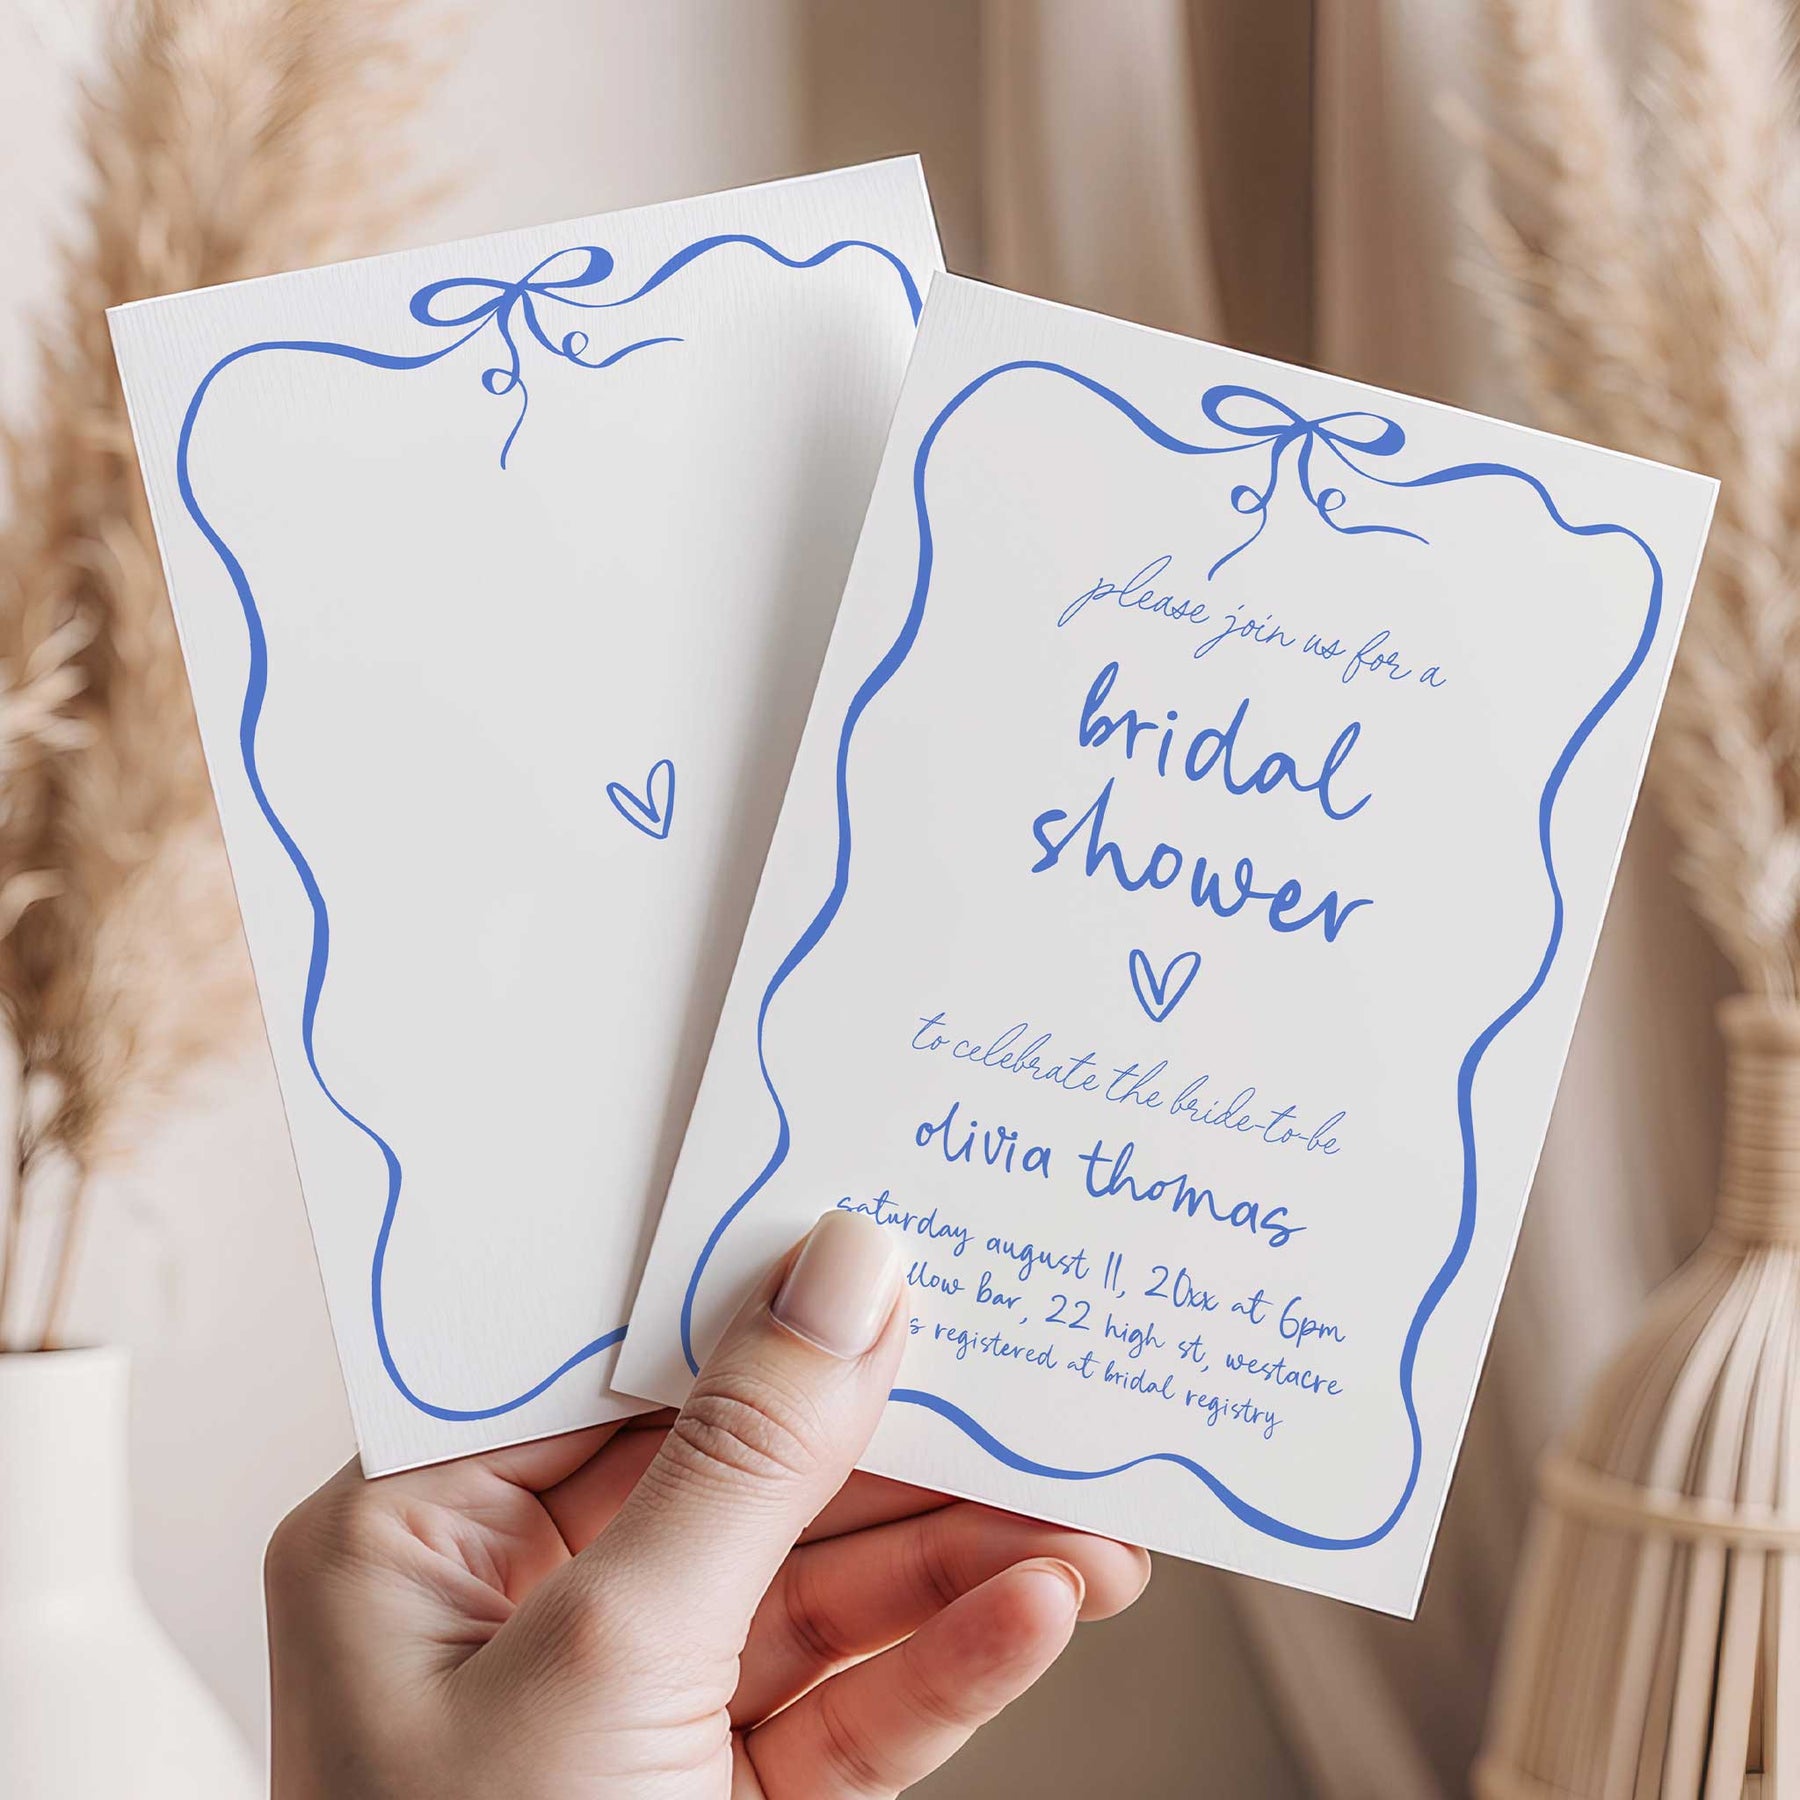 please join us for a
bridal
shower
to celebrate the bride-to-be
olivia thomas
saturday august 11, 20xx at 6pm
bar, 22 high st, westacre
registered at bridal registry